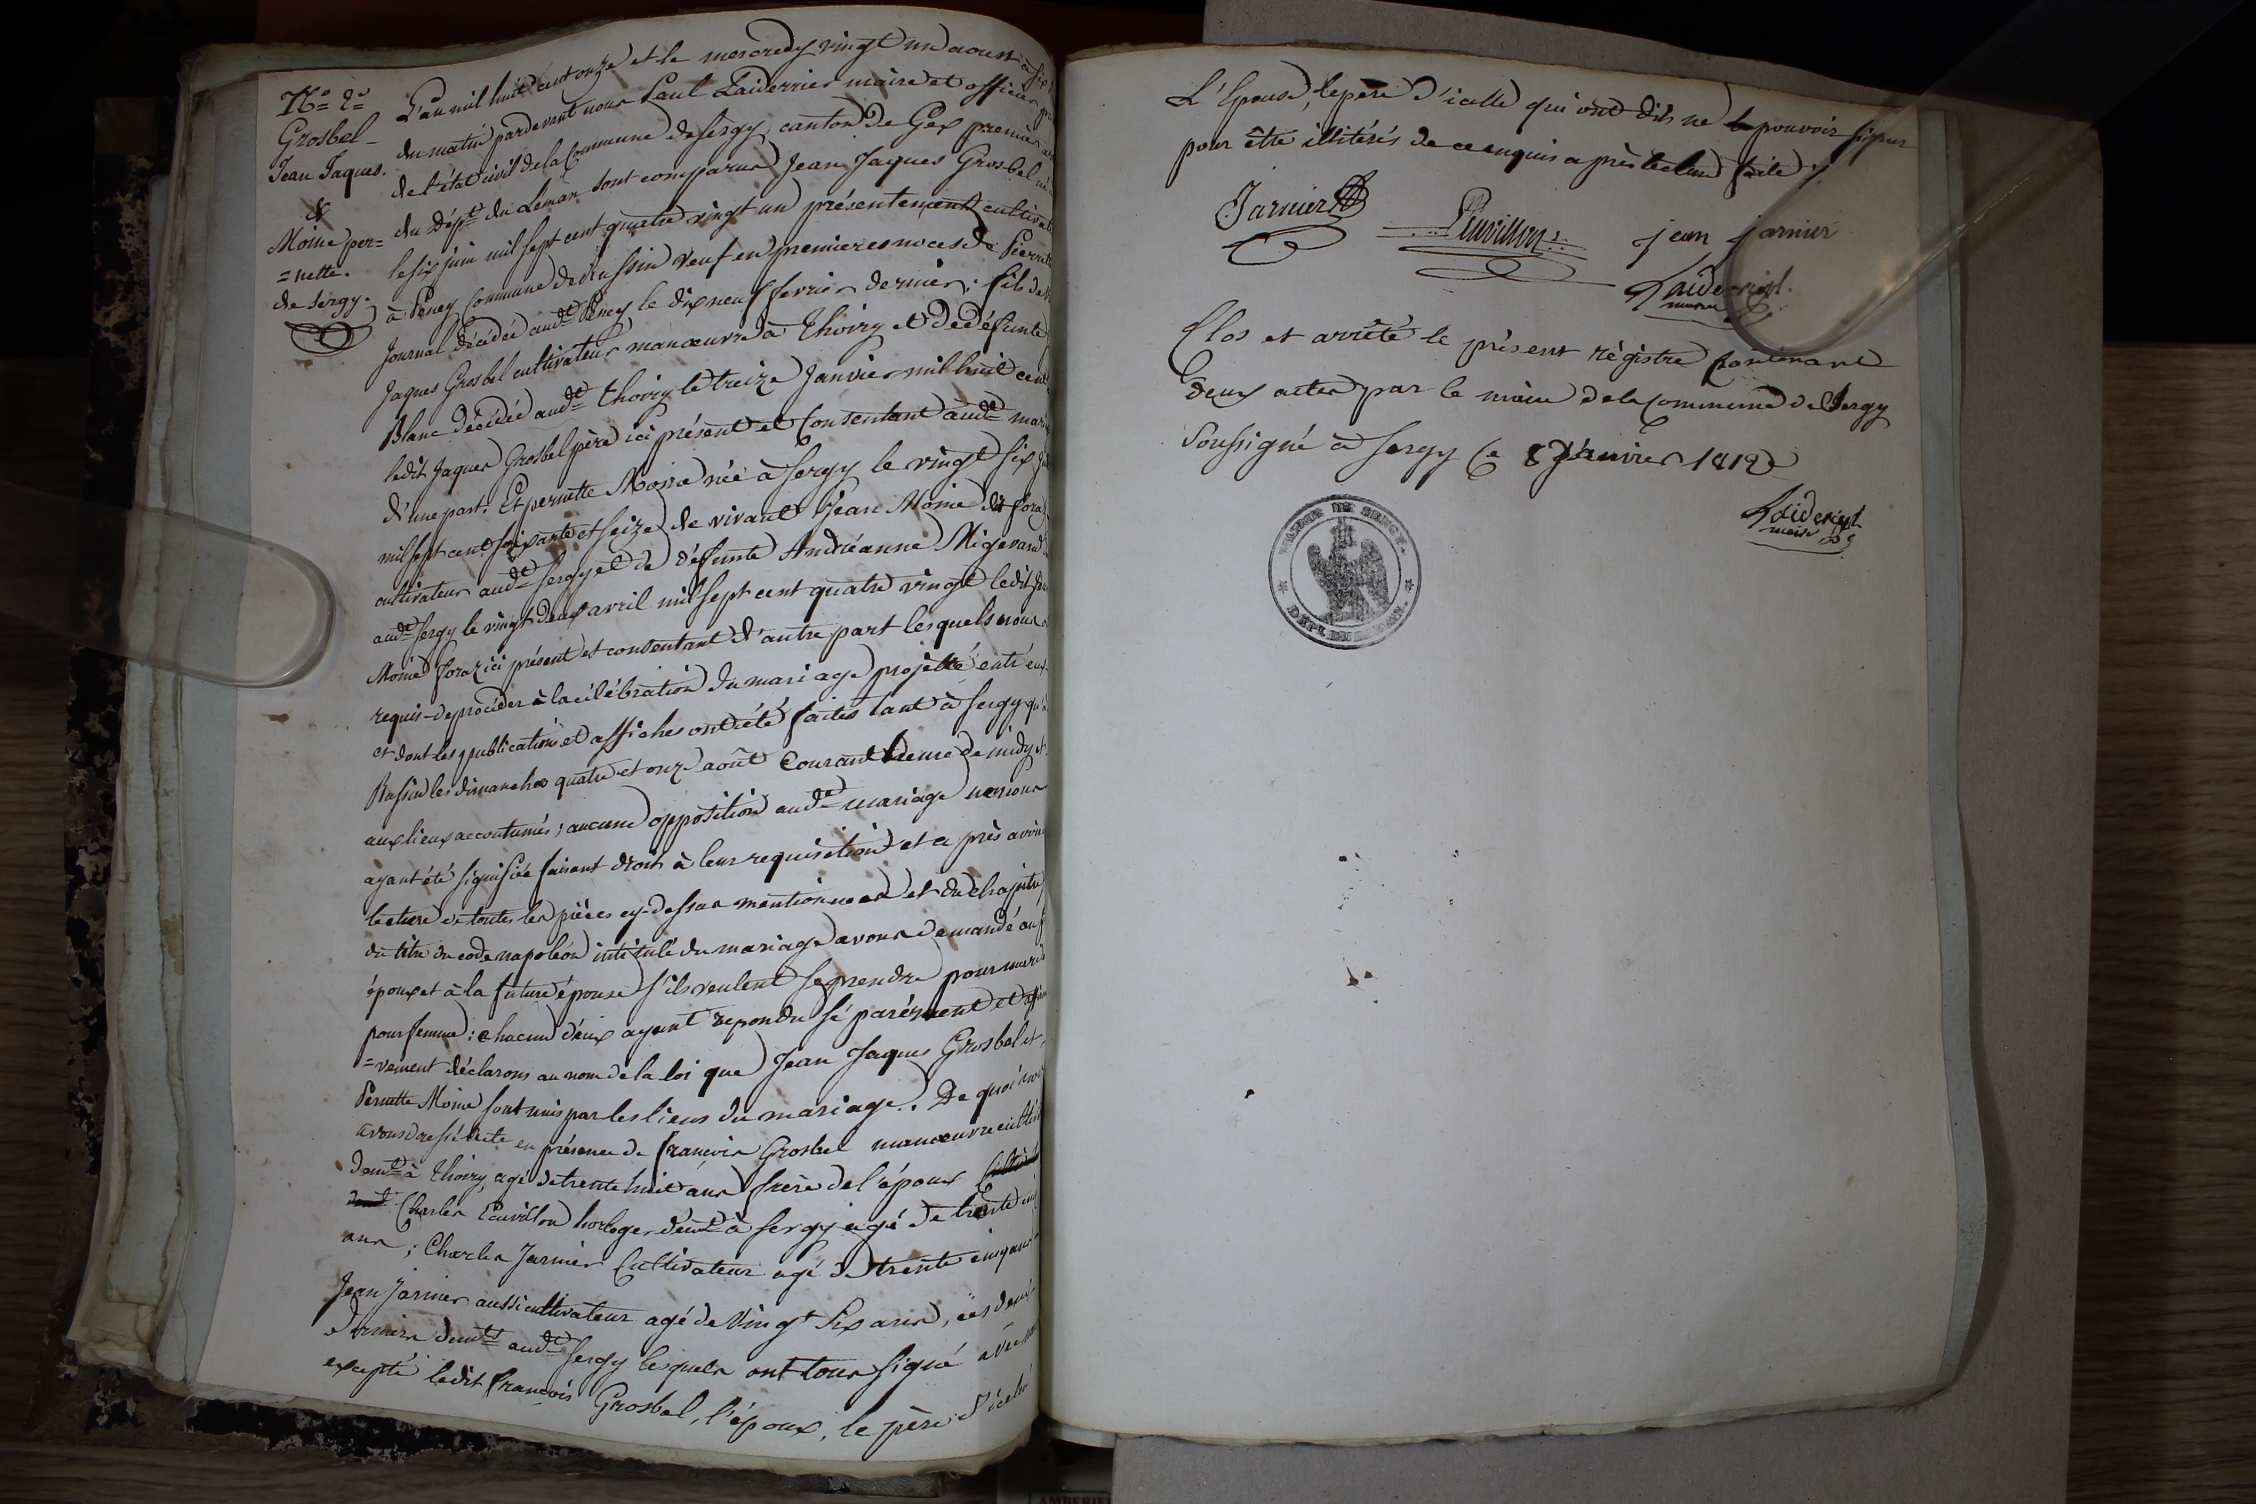 No 2e
Grosbel
Jean Jaques.
&
Moine per=
=nette.
de Sergy.
L'an mil huit cent onze et le mercredy vingt un aoust à six
du matin pardevant nous Paul Laiderrier maire et officier
de l'état civil de la Commune de Sergy, canton de Gex premier
du Dépt du Léman sont comparus Jean Jaques Grosbel né
le six juin mil sept cent quatre vingt un présentement cultivat
à Peney Commune de veuf en premieres noces de Pierrette
Journal décédée audt Peney le dix neuf fevrier dernier; fils de
Jaques Grosbel cultivateur manœuvre à Thoiry et de défunte
Blanc décédée audt Thoiry le treize Janvier mil huit cent
ledit Jaques Grosbel père ici présent et Consentant audt mar
d'une part. Et pernette Moine née à Sergy le vingt six
mil sept cent soixante et seize de vivant Jean Moine dit foraz
cultivateur audt Sergy et de défunte Andréanne Migerand
audt Sergy le vingt deux avril mil sept cent quatre vingt ledit Jean
Moine foraz ici présent et consentant d'autre part lesquels nous
requis de procéder à la célébration du mariage projetté entr'eux
et dont les publications et affiches ont été faites tant à Sergy qu'à
les dimanches quatre et onze août Courant heure de midy et
aux lieux accoutumés; aucune opposition audt mariage ne nous
ayant été signifiée faisant droit à leur requisition et après avoir
lecture de toutes les pièces cy-dessus mentionnées et du chapitre
du titre du code napoléon intitulé du mariage avons demandé au f
époux et à la future épouse s'ils veulent se prendre pour mari
pour femme: chacun d'eux ayant repondu séparément et affir
=vement déclarons au nom de la loi que Jean Jaques Grosbel et
Pernette Moine sont unis par les liens du mariage. De quoi nous
avons dressé acte en présence de françois Grosbel manœuvre cultiv
demt à Thoiry, agé de trente huit ans frère de l'époux
Charles Peuvillon horloger demt à Sergy agé de trente
ans; Charles Jarnier Cultivateur agé de trente cinq ans
Jean Jarnier aussi cultivateur agé de Vingt Six ans, ces deux
derniers demts audt Sergy lesquels ont tous signé avec nous
excepté ledit françois Grosbel, l'époux, le père d'icelui
L'Epouse, le père d'icelle qui ont dits ne pouvoir signer
pour être illitérés de ce enquis après lecture faite.
Jarnier
Peuvillon
jean jarnier
Laiderrier
maire
Clos et arrêté le présent régistre Contenant
deux actes par le maire de la Commune de Sergy
Soussigné à Sergy le 8 Janvier 1812
Laiderrier
maire
MAIRIE DE SERGY.
DÉPT. DU LÉMAN.
AMBERIEU